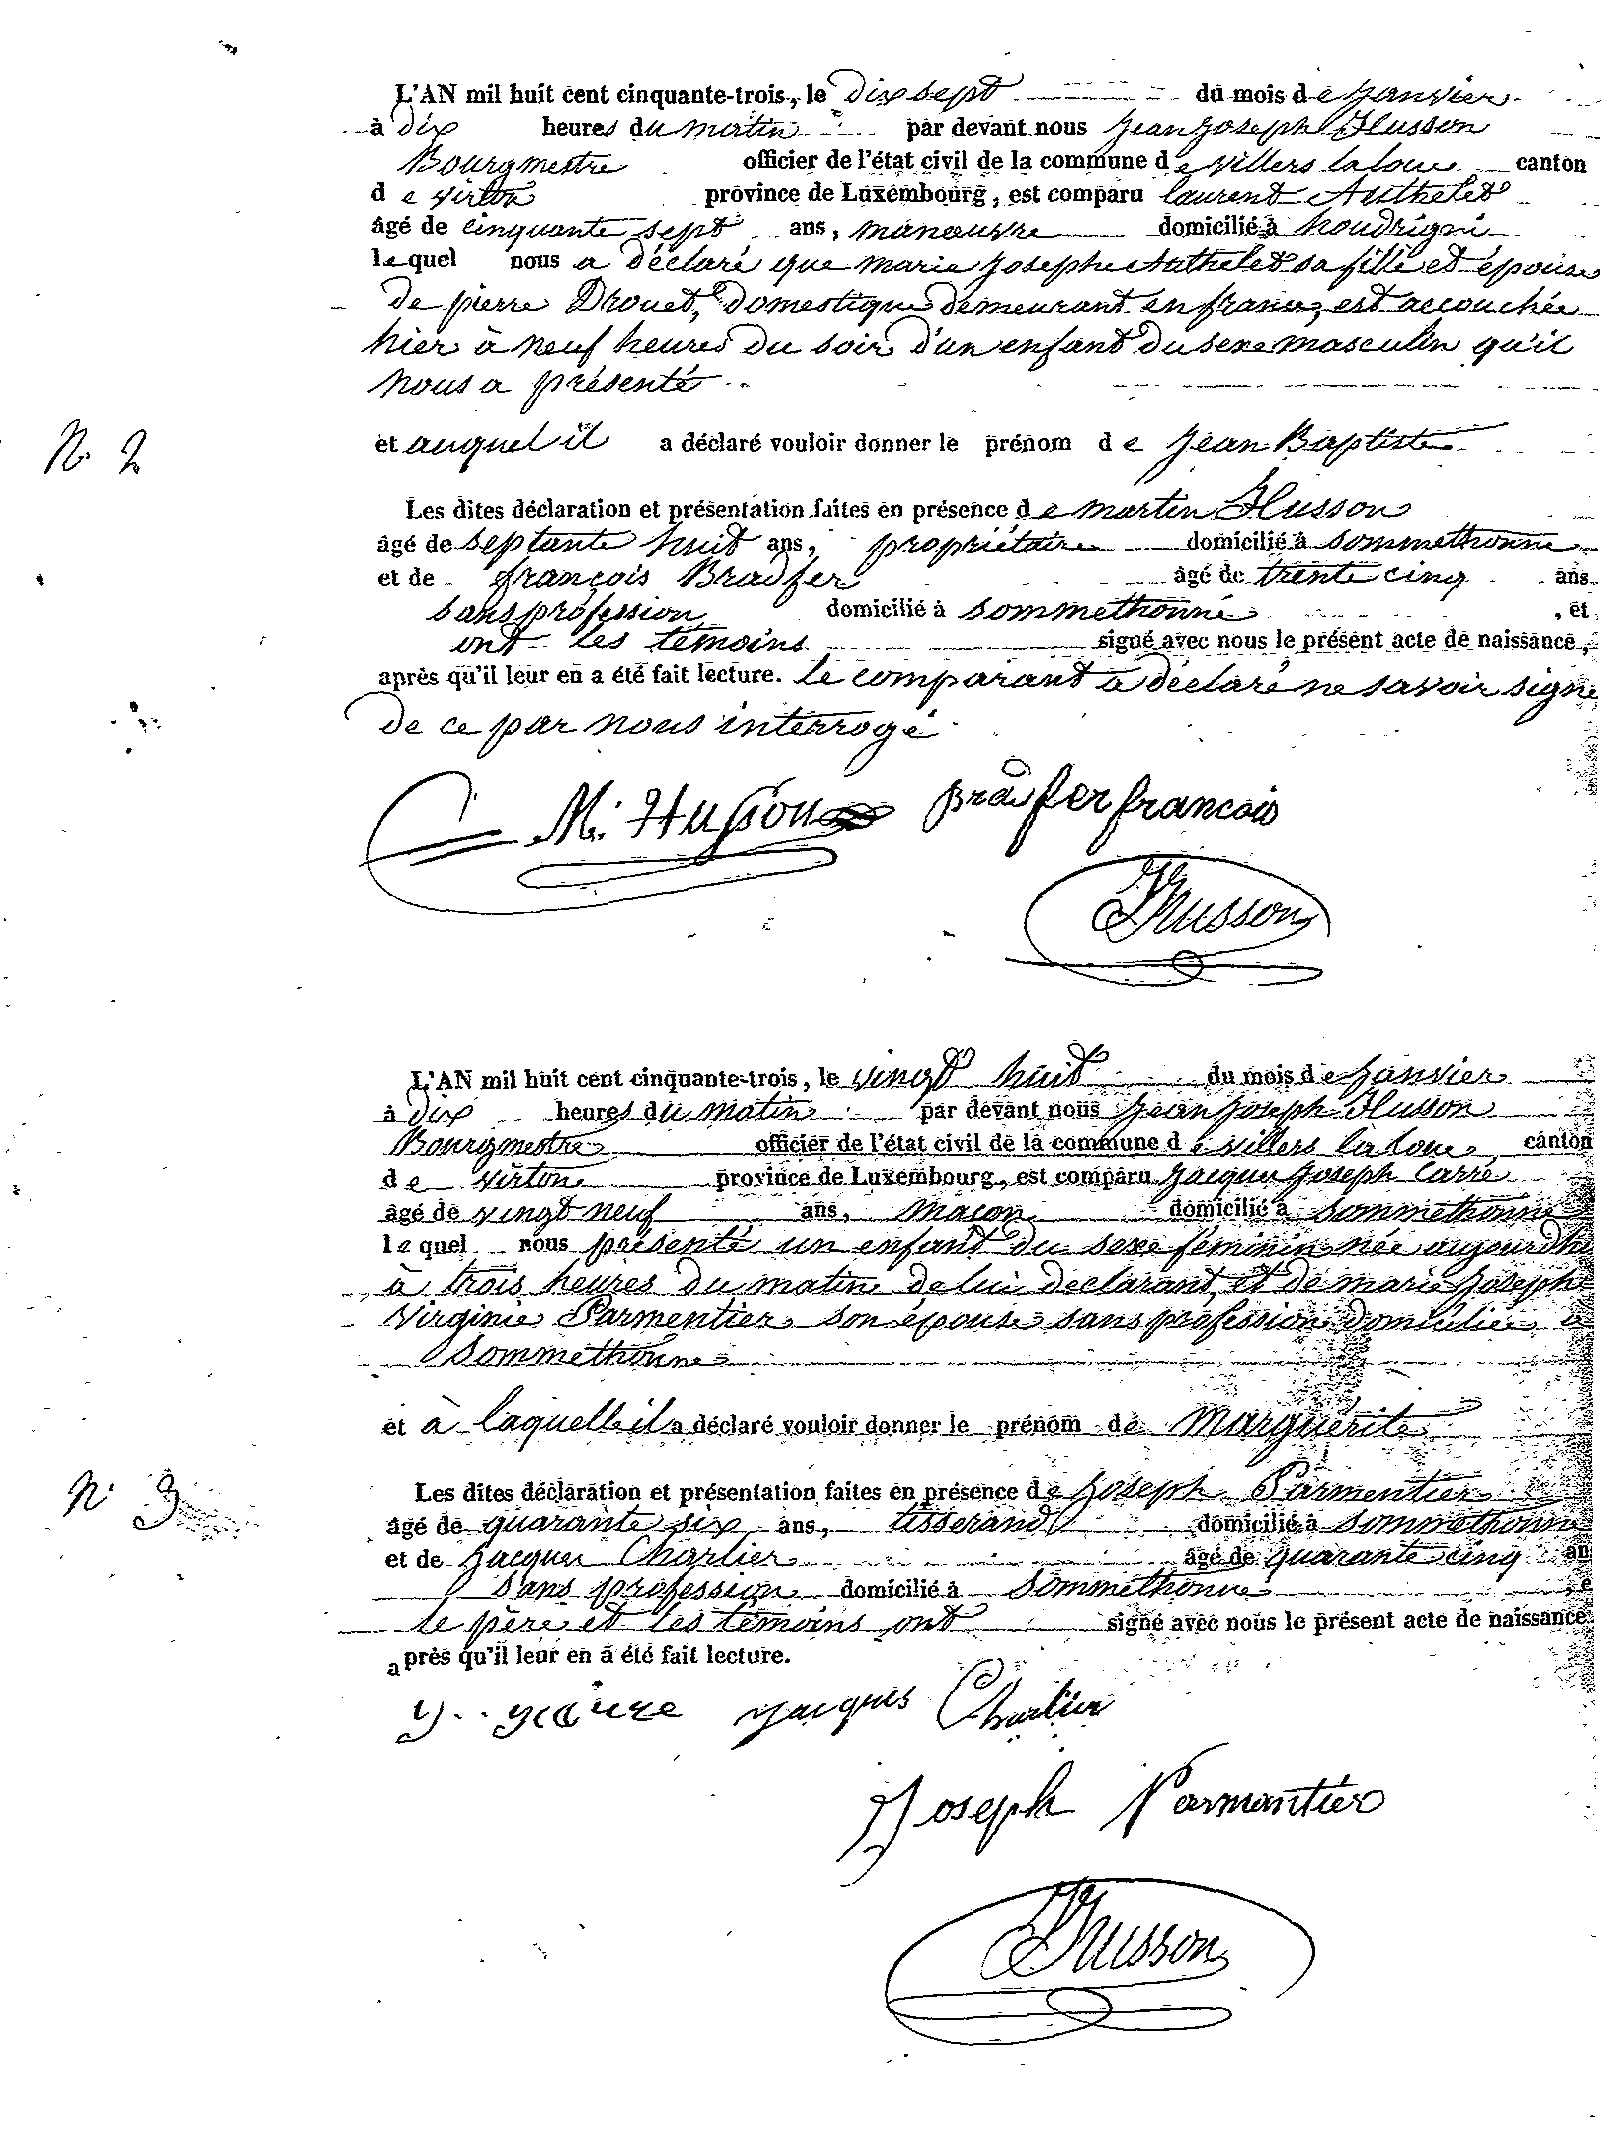 L'AN mil huit cent cinquante-trois, le dix sept du mois de janvier
à dix heures du matin par devant nous jean joseph Husson
Bourgmestre officier de l'état civil de la commune de villers la loue canton
de virton province de Luxembourg, est comparu laurent Authelet
âgé de cinquante sept ans, manœuvre domicilié à houdrigni
lequel nous a déclaré que marie josephe Authelet sa fille et épouse
de pierre Drouet, domestique demeurant en france, est accouchée
hier à neuf heures du soir d'un enfant du sexe masculin qu'il
nous a présenté
N. 2
et auquel il a déclaré vouloir donner le prénom de jean Baptiste
Les dites déclaration et présentation faites en présence de martin Husson
âgé de septante huit ans, propriétaire domicilié à sommethonne
et de françois Bradfer âgé de trente cinq ans
sans profession domicilié à sommethonne, et
ont les témoins signé avec nous le présent acte de naissance,
après qu'il leur en a été fait lecture. le comparant a déclaré ne savoir signe
de ce par nous interrogé
M. Husson bradfer francois
Husson
L'AN mil huit cent cinquante-trois, le vingt huit du mois de janvier
à dix heures du matin par devant nous jean joseph Husson
Bourgmestre officier de l'état civil de la commune de villers la loue canton
de virton province de Luxembourg, est comparu jacques joseph Carré
âgé de vingt neuf ans, maçon domicilié à sommethonne
lequel nous présenté un enfant du sexe féminin née aujourdhu
à trois heures du matin de lui déclarant, et de marie josephe
virginie Parmentier son épouse sans profession domiciliée à
sommethonne
et à laquelle il a déclaré vouloir donner le prénom de Marguérite
N. 3
Les dites déclaration et présentation faites en présence de joseph Parmentier
âgé de quarante six ans, tisserand domicilié à sommethonne
et de jacques Charlier âgé de quarante cinq an
sans profession domicilié à sommethonne, e
le père et les témoins ont signé avec nous le présent acte de naissance
après qu'il leur en a été fait lecture.
jacques Charlier
Joseph Parmantier
Husson